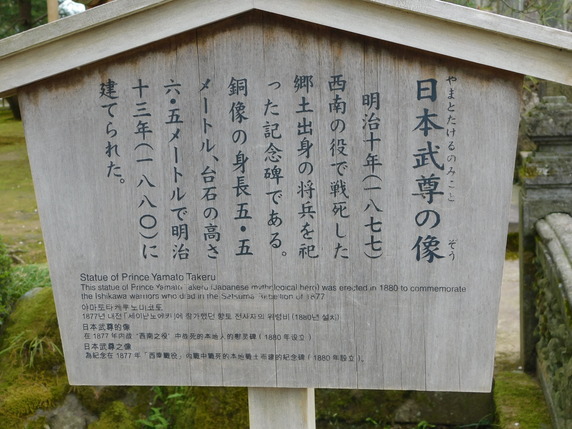 日本武尊の像
やまとたけるのみこと ぞう
明治十年(一八七七)
西南の役で戦死した
郷土出身の将兵を祀
った記念碑である。
銅像の身長五・五
メートル、台石の高さ
六・五メートルで明治
十三年(一八八〇)に
建てられた。
Statue of Prince Yamato Takeru
This statue of Prince Yamato Takeru (Japanese mythological hero) was erected in 1880 to commemorate
the Ishikawa warriors who died in the Satsuma Rebellion of 1877
야마토타케루노미코토
1877년 내전「세이난노에키」에 참가했던 향토 전사자의 위령비 (1880년 설치)
日本武尊的像
在 1877 年内战 "西南之役" 中战死的本地人的慰灵碑 ( 1880 年设立 )
日本武尊之像
為紀念在 1877 年「西南戰役」內戰中戰死的本地戰士而建的紀念碑 ( 1880 年設立 )。